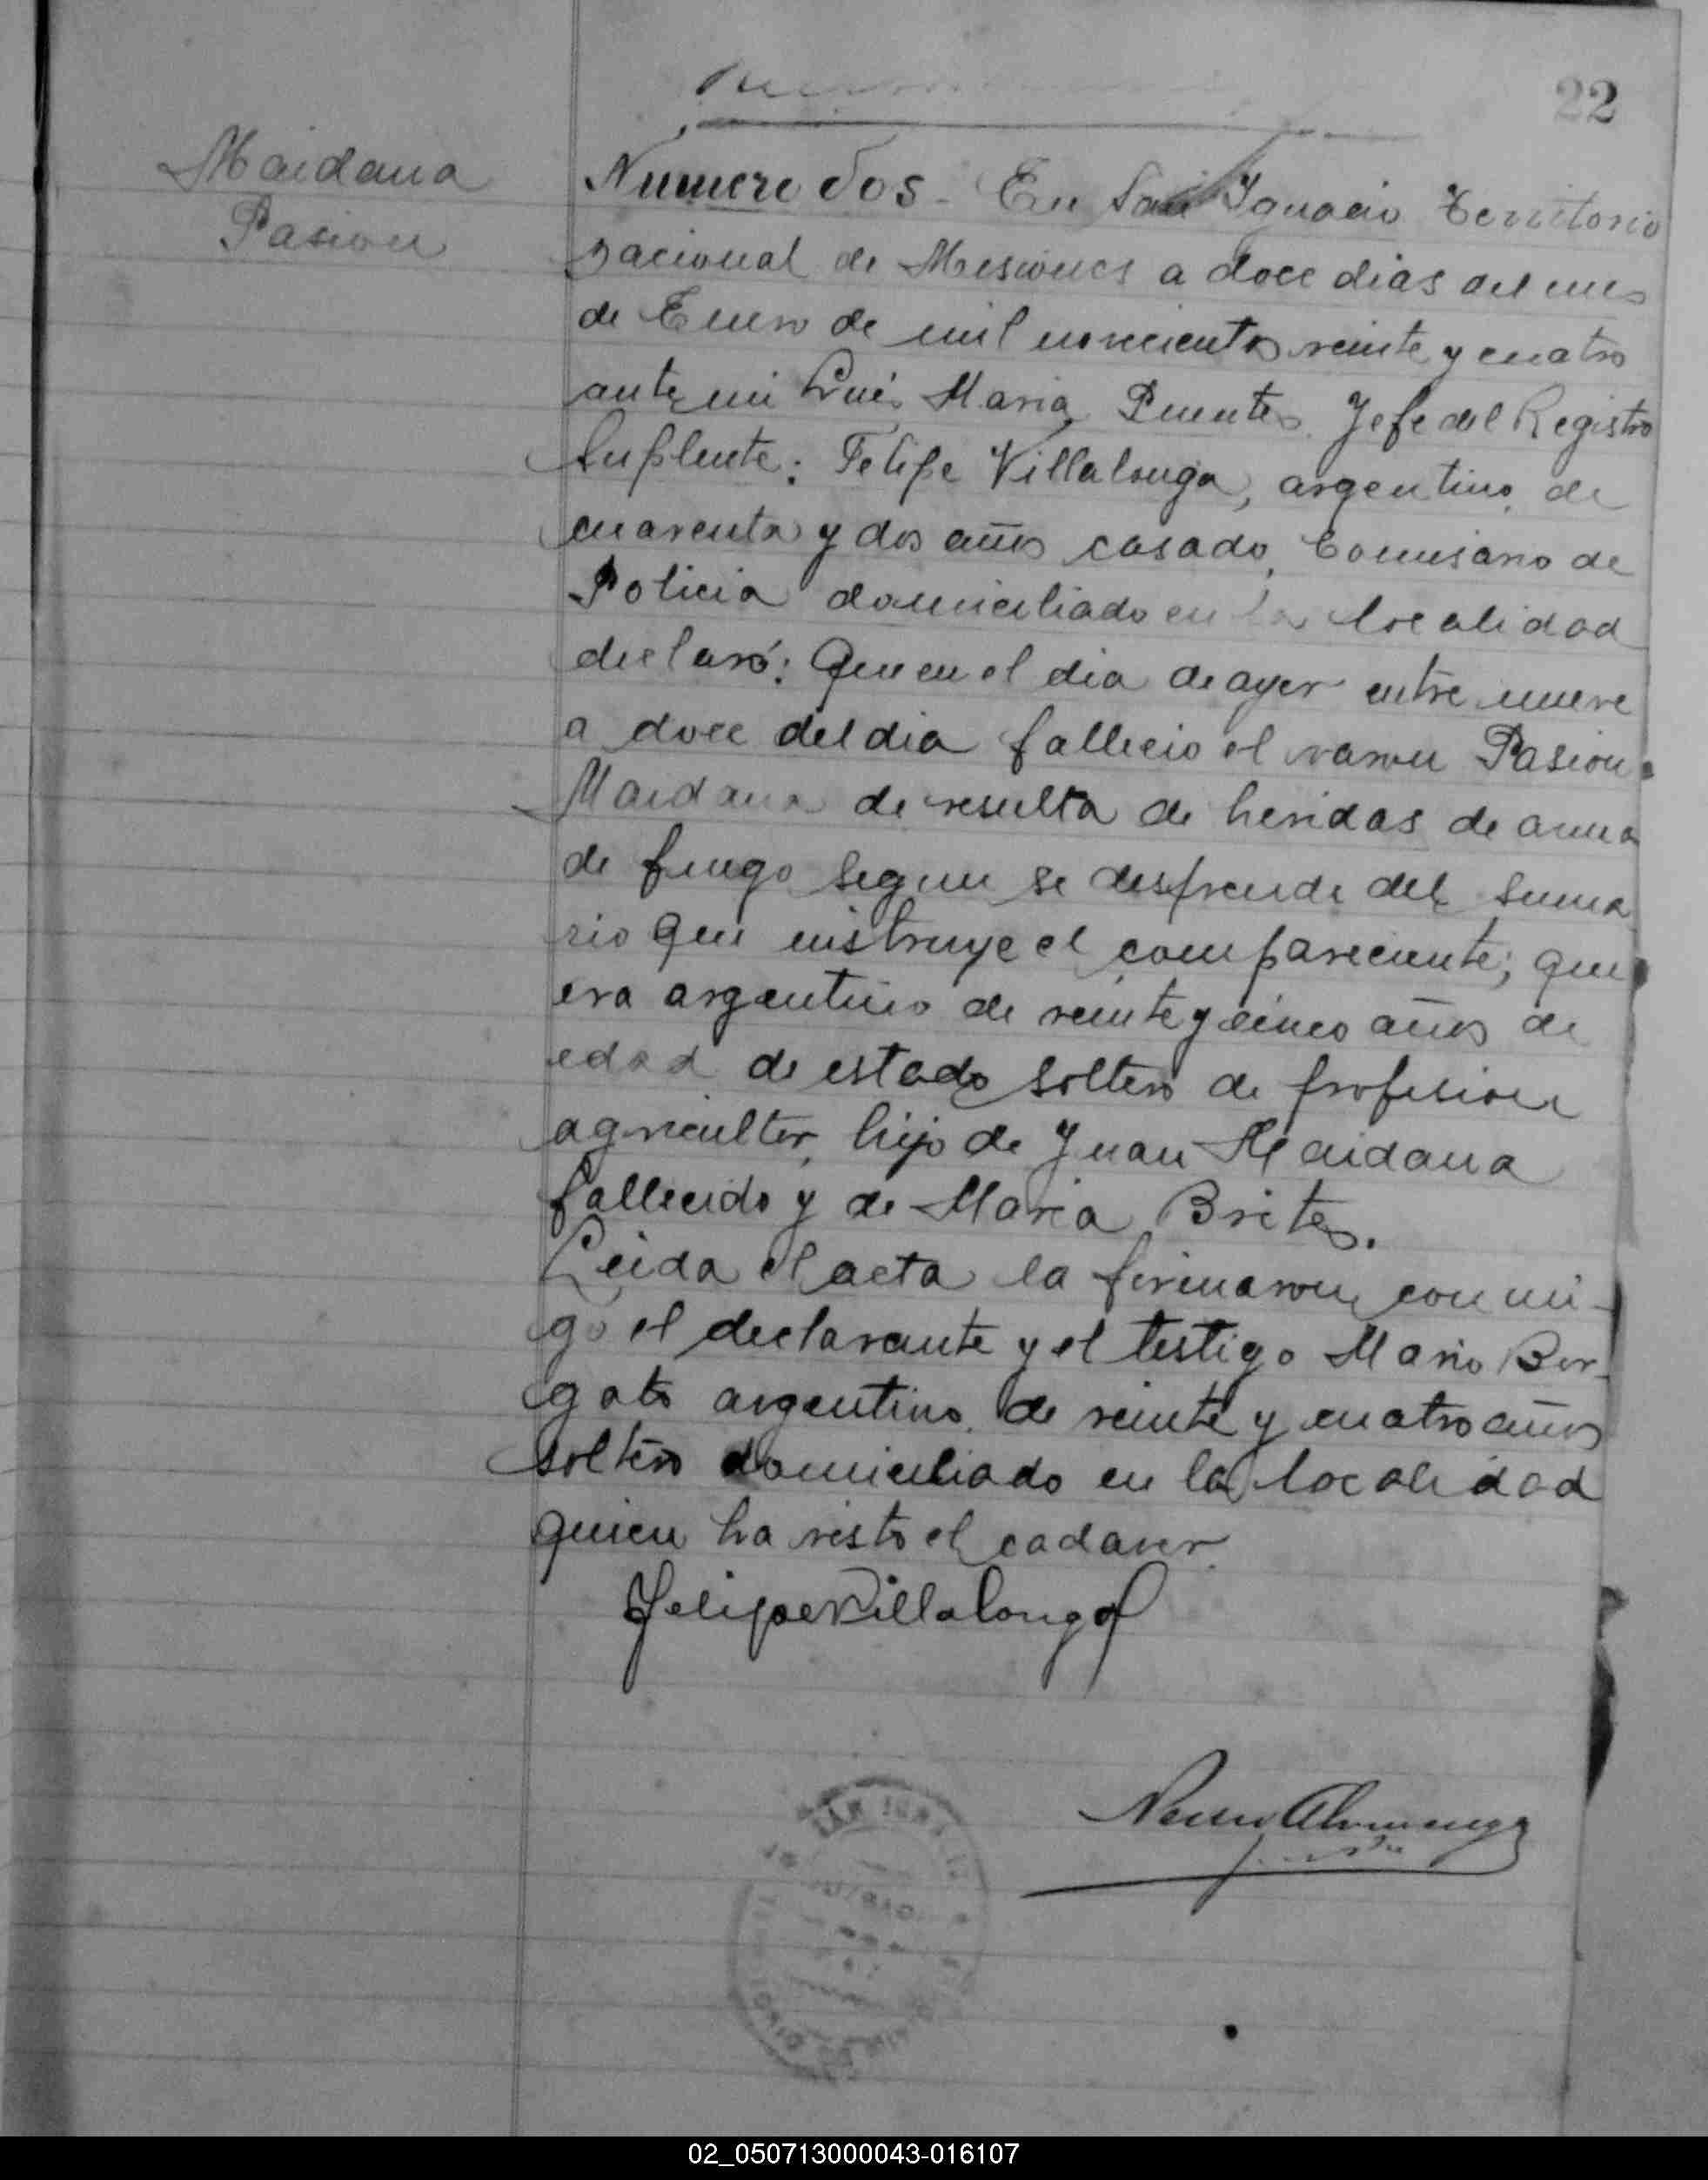 22
Maidana
Pasion
Número dos - En San Ignacio Territorio
nacional de Misiones a doce dias del mes
de Enero de mil novecientos veinte y cuatro
ante mi Luis Maria Puentes Jefe del Registro
Suplente: Felipe Villalonga, argentino, de
cuarenta y dos años casado, Comisario de
Policia domiciliado en la localidad
declaró: Que en el dia de ayer entre nueve
a doce del dia fallecio el varon Pasion
Maidana de resulta de heridas de arma
de fuego segun se desprende del suma
rio que instruye el compareciente; que
era argentino de veinte y cinco años de
edad de estado soltero de profesion
agricultor, hijo de Juan Maidana
fallecido y de Maria Brites.
Leida el acta la firmaron conmi-
go el declarante y el testigo Mario Bor-
gato argentino, de veinte y cuatro años
soltero domiciliado en la localidad
quien ha visto el cadaver.
Felipe Villalonga
SAN IGNACIO
02_050713000043-016107